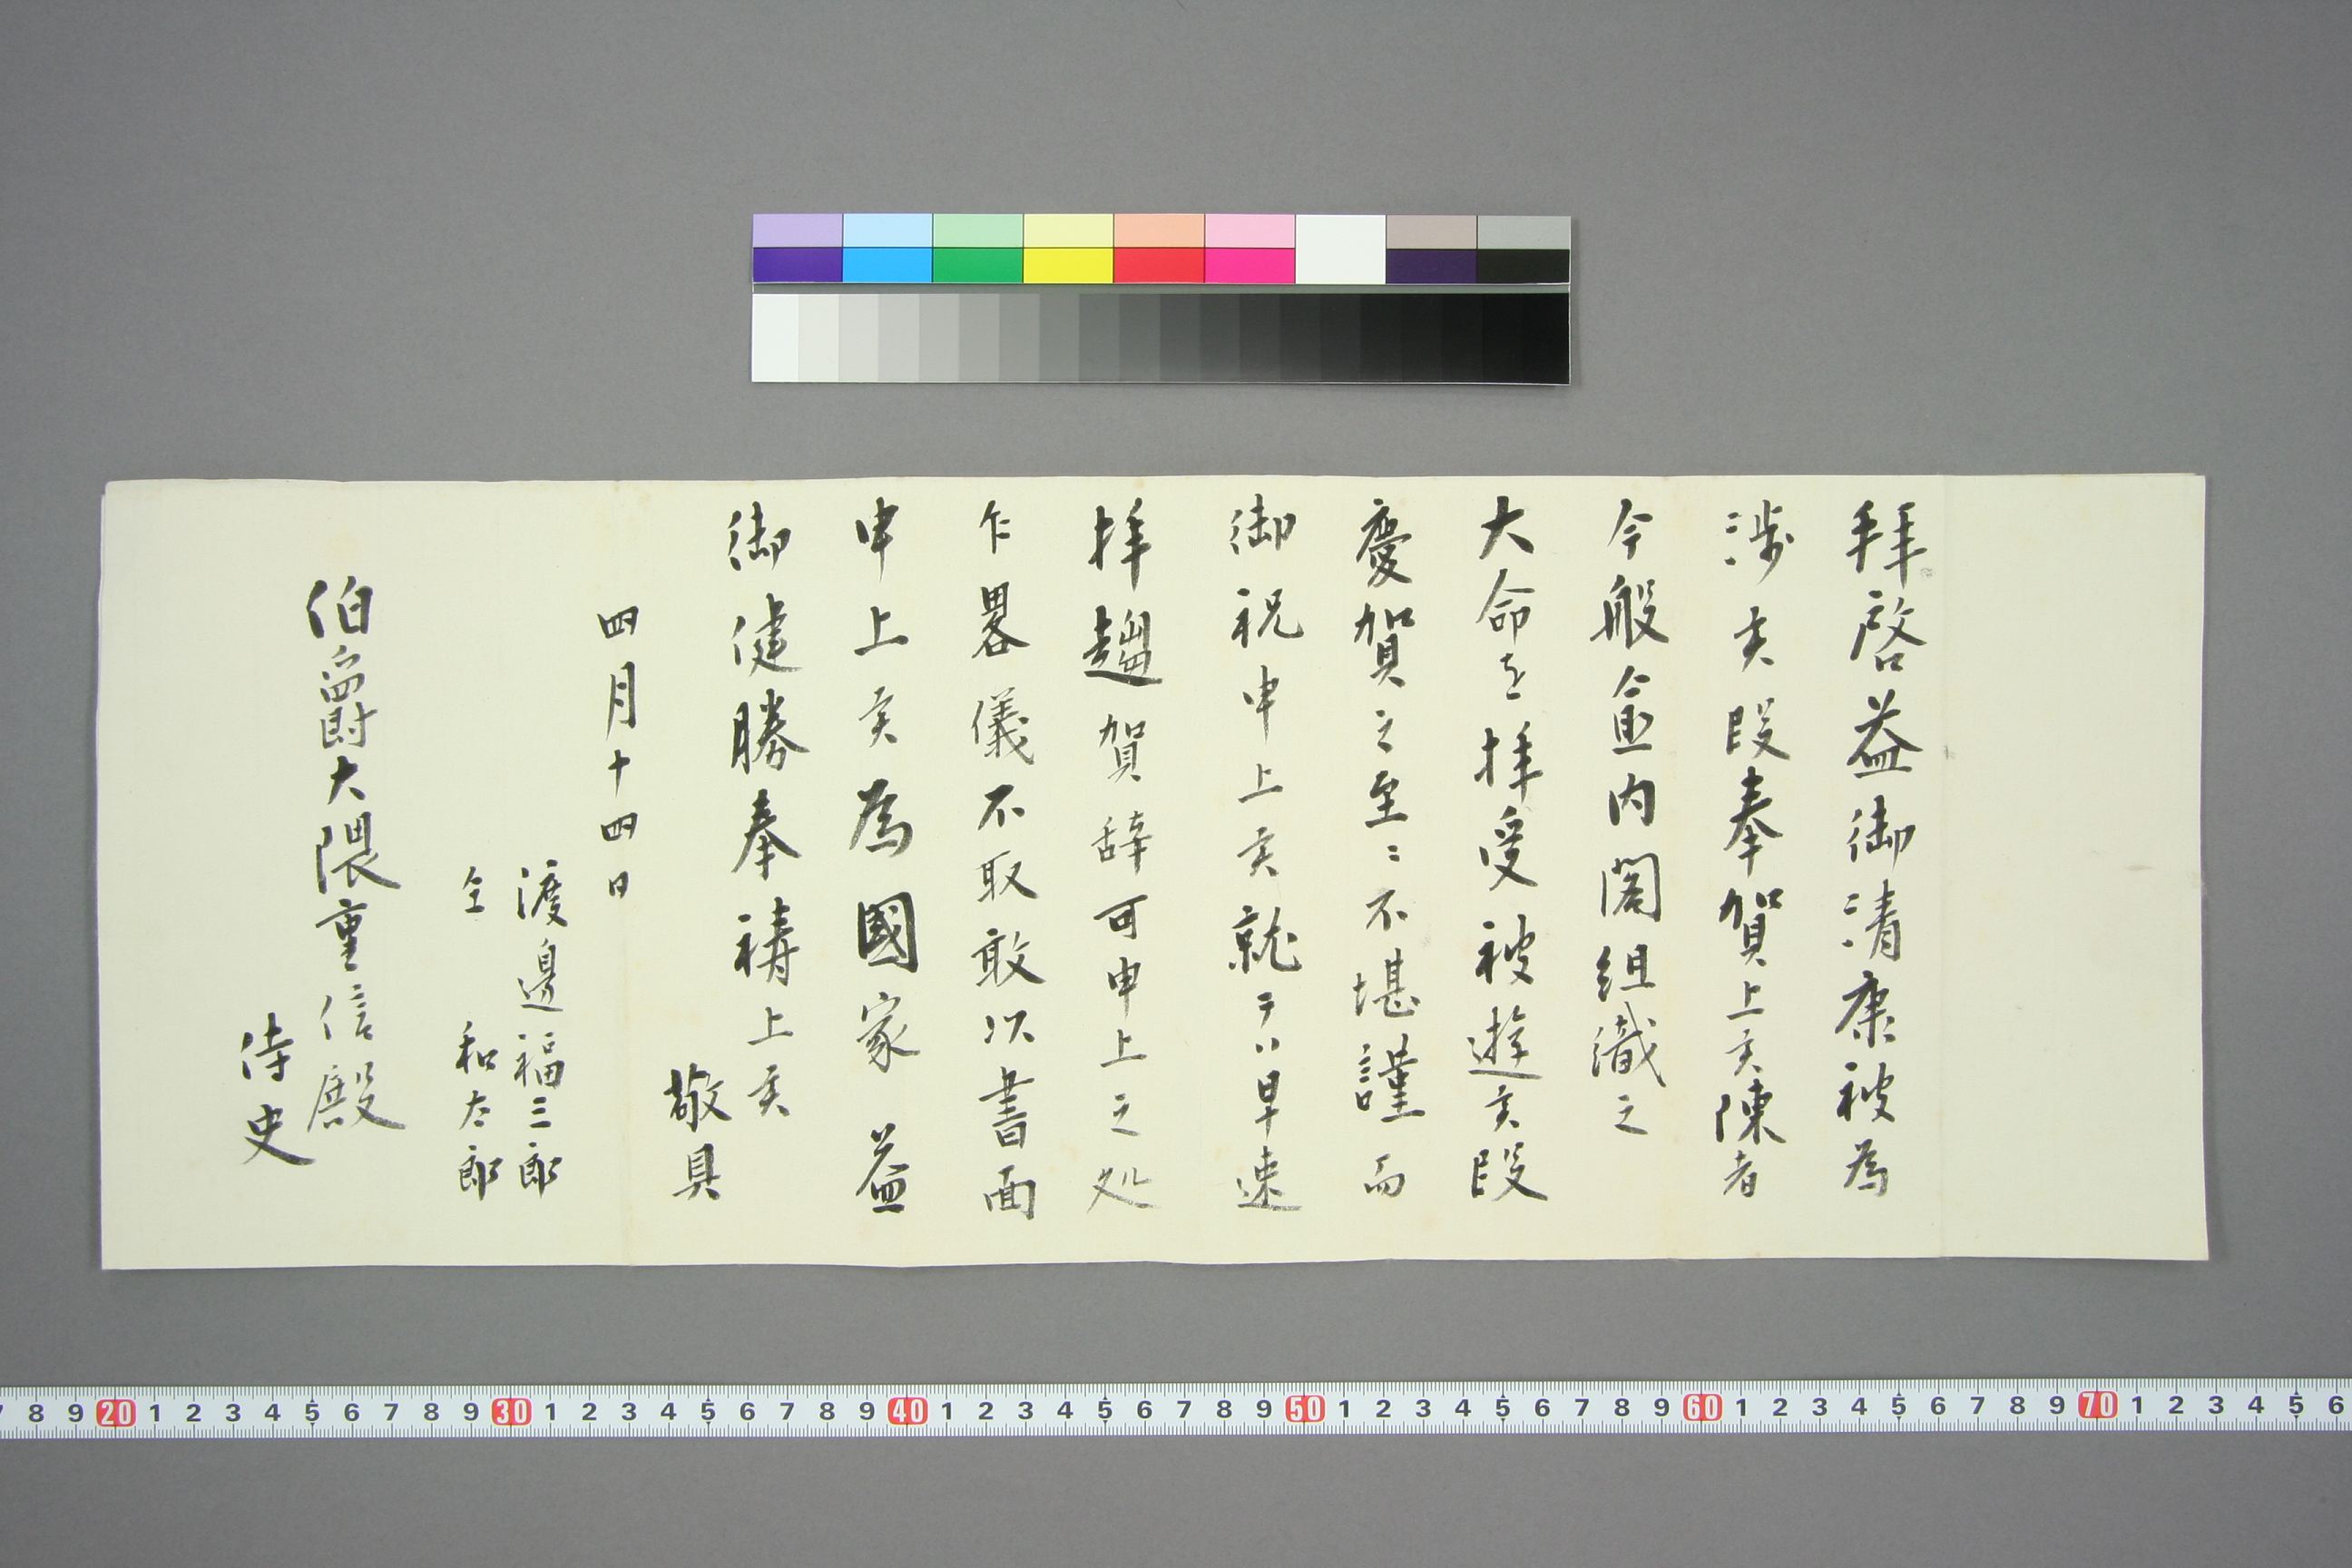 拜啓益御清康被為
渉候段奉賀上候陳者
今般愈内閣組織之
大命を拝受被遊候段
慶賀之至ニ不堪謹而
御祝申上候就テハ早速
拝趨賀辞可申上之処
乍畧儀不取敢以書面
申上候為國家益
御健勝奉禱上候
敬具
四月十四日
渡邉福三郎
仝和太郎
伯爵大隈重信殿
侍史
7 8 9 20 1 2 3 4 5 6 7 8 9 30 1 2 3 4 5 6 7 8 9 40 1 2 3 4 5 6 7 8 9 50 1 2 3 4 5 6 7 8 9 60 1 2 3 4 5 6 7 8 9 70 1 2 3 4 5 6